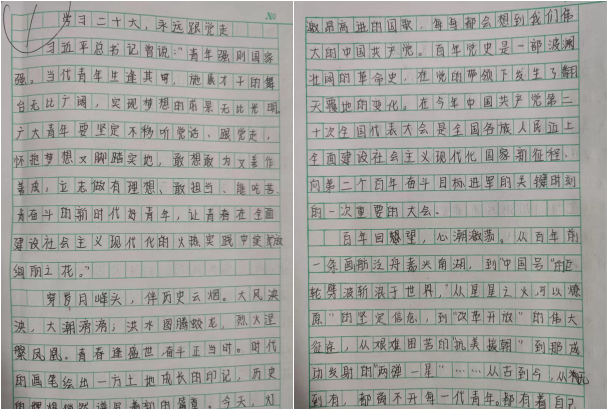 No
学习二十大，永远跟党走
习近平总书记曾说："青年强则国家
强。当代青年生逢其时，施展才干的舞
台无比广阔，实现梦想的前景无比光明。
广大青年要坚定不移听党话、跟党走，
怀抱梦想又脚踏实地，敢想敢为又善作
善成，立志做有理想、敢担当、能吃苦、
肯奋斗的新时代好青年，让青春在全面
建设社会主义现代化的火热实践中绽放
绚丽之花。"
岁月峰头，伴历史云烟。大风泱
泱，大潮滂滂；洪水图腾蛟龙，烈火涅
槃凤凰。青春逢盛世，奋斗正当时。时代
的画笔绘出一方土地成长的印记，历史
今天，
激昂高进的国歌，每每都会想到我们伟
大的中国共产党。百年党史是一部波澜
壮阔的革命史，在党的带领下发生了翻
天覆地的变化。在今年中国共产党第二
十次全国代表大会是全国各族人民迈上
全面建设社会主义现代化国家新征程、
向第二个百年奋斗目标进军的关键时刻
的一次重要的大会。
百年回望，心潮激荡。从百年前
一条画舫泛舟嘉兴南湖，到"中国号"
轮劈波斩浪于世界，"从星星之火，可以燎
原"的坚定信念，到"改革开放"的伟大
征途，从艰难困苦的"抗美援朝"到那成
功发射的"两弹一星"……从古到今，从
到有，都离不开每一代青年。都有着自己